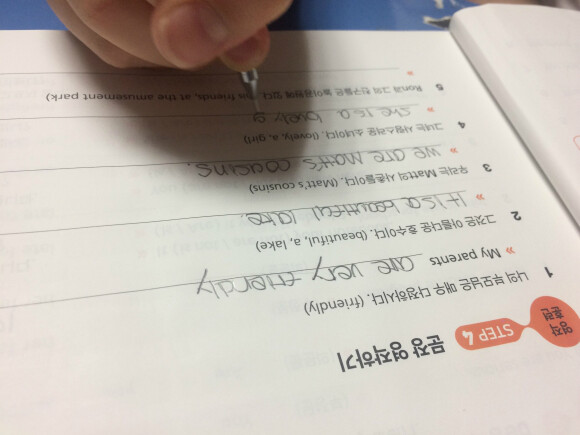 영작
훈련
STEP 4 문장 영작하기
1 나의 부모님은 매우 다정하시다. (friendly)
» My parents are very friendly
2 그것은 아름다운 호수이다. (beautiful, a, lake)
» It is a beautiful lake.
3 우리는 Matt의 사촌들이다. (Matt's cousins)
» We are Matt's cousins.
4 그녀는 사랑스러운 소녀이다. (lovely, a, girl)
» she is a lovely g
5 Ron과 그의 친구들은 놀이공원에 있다. friends, at the amusement park)
»